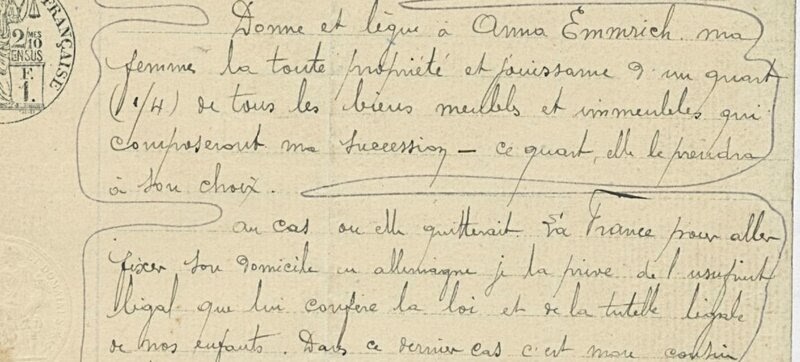 FRANÇAISE
2 MES
10
EN SUS
F
1.
Donne et lègue à Anna Emmrich ma
femme la toute propriété et jouissance d'un quart
(1/4) de tous les biens meubles et immeubles qui
composeront ma succession — ce quart, elle le prendra
à son choix.
au cas ou elle quitterait la France pour aller
fixer son domicile en allemagne je la prive de l'usufruit
légal que lui confère la loi et de la tutelle légale
de nos enfants. Dans ce dernier cas c'est mon cousin